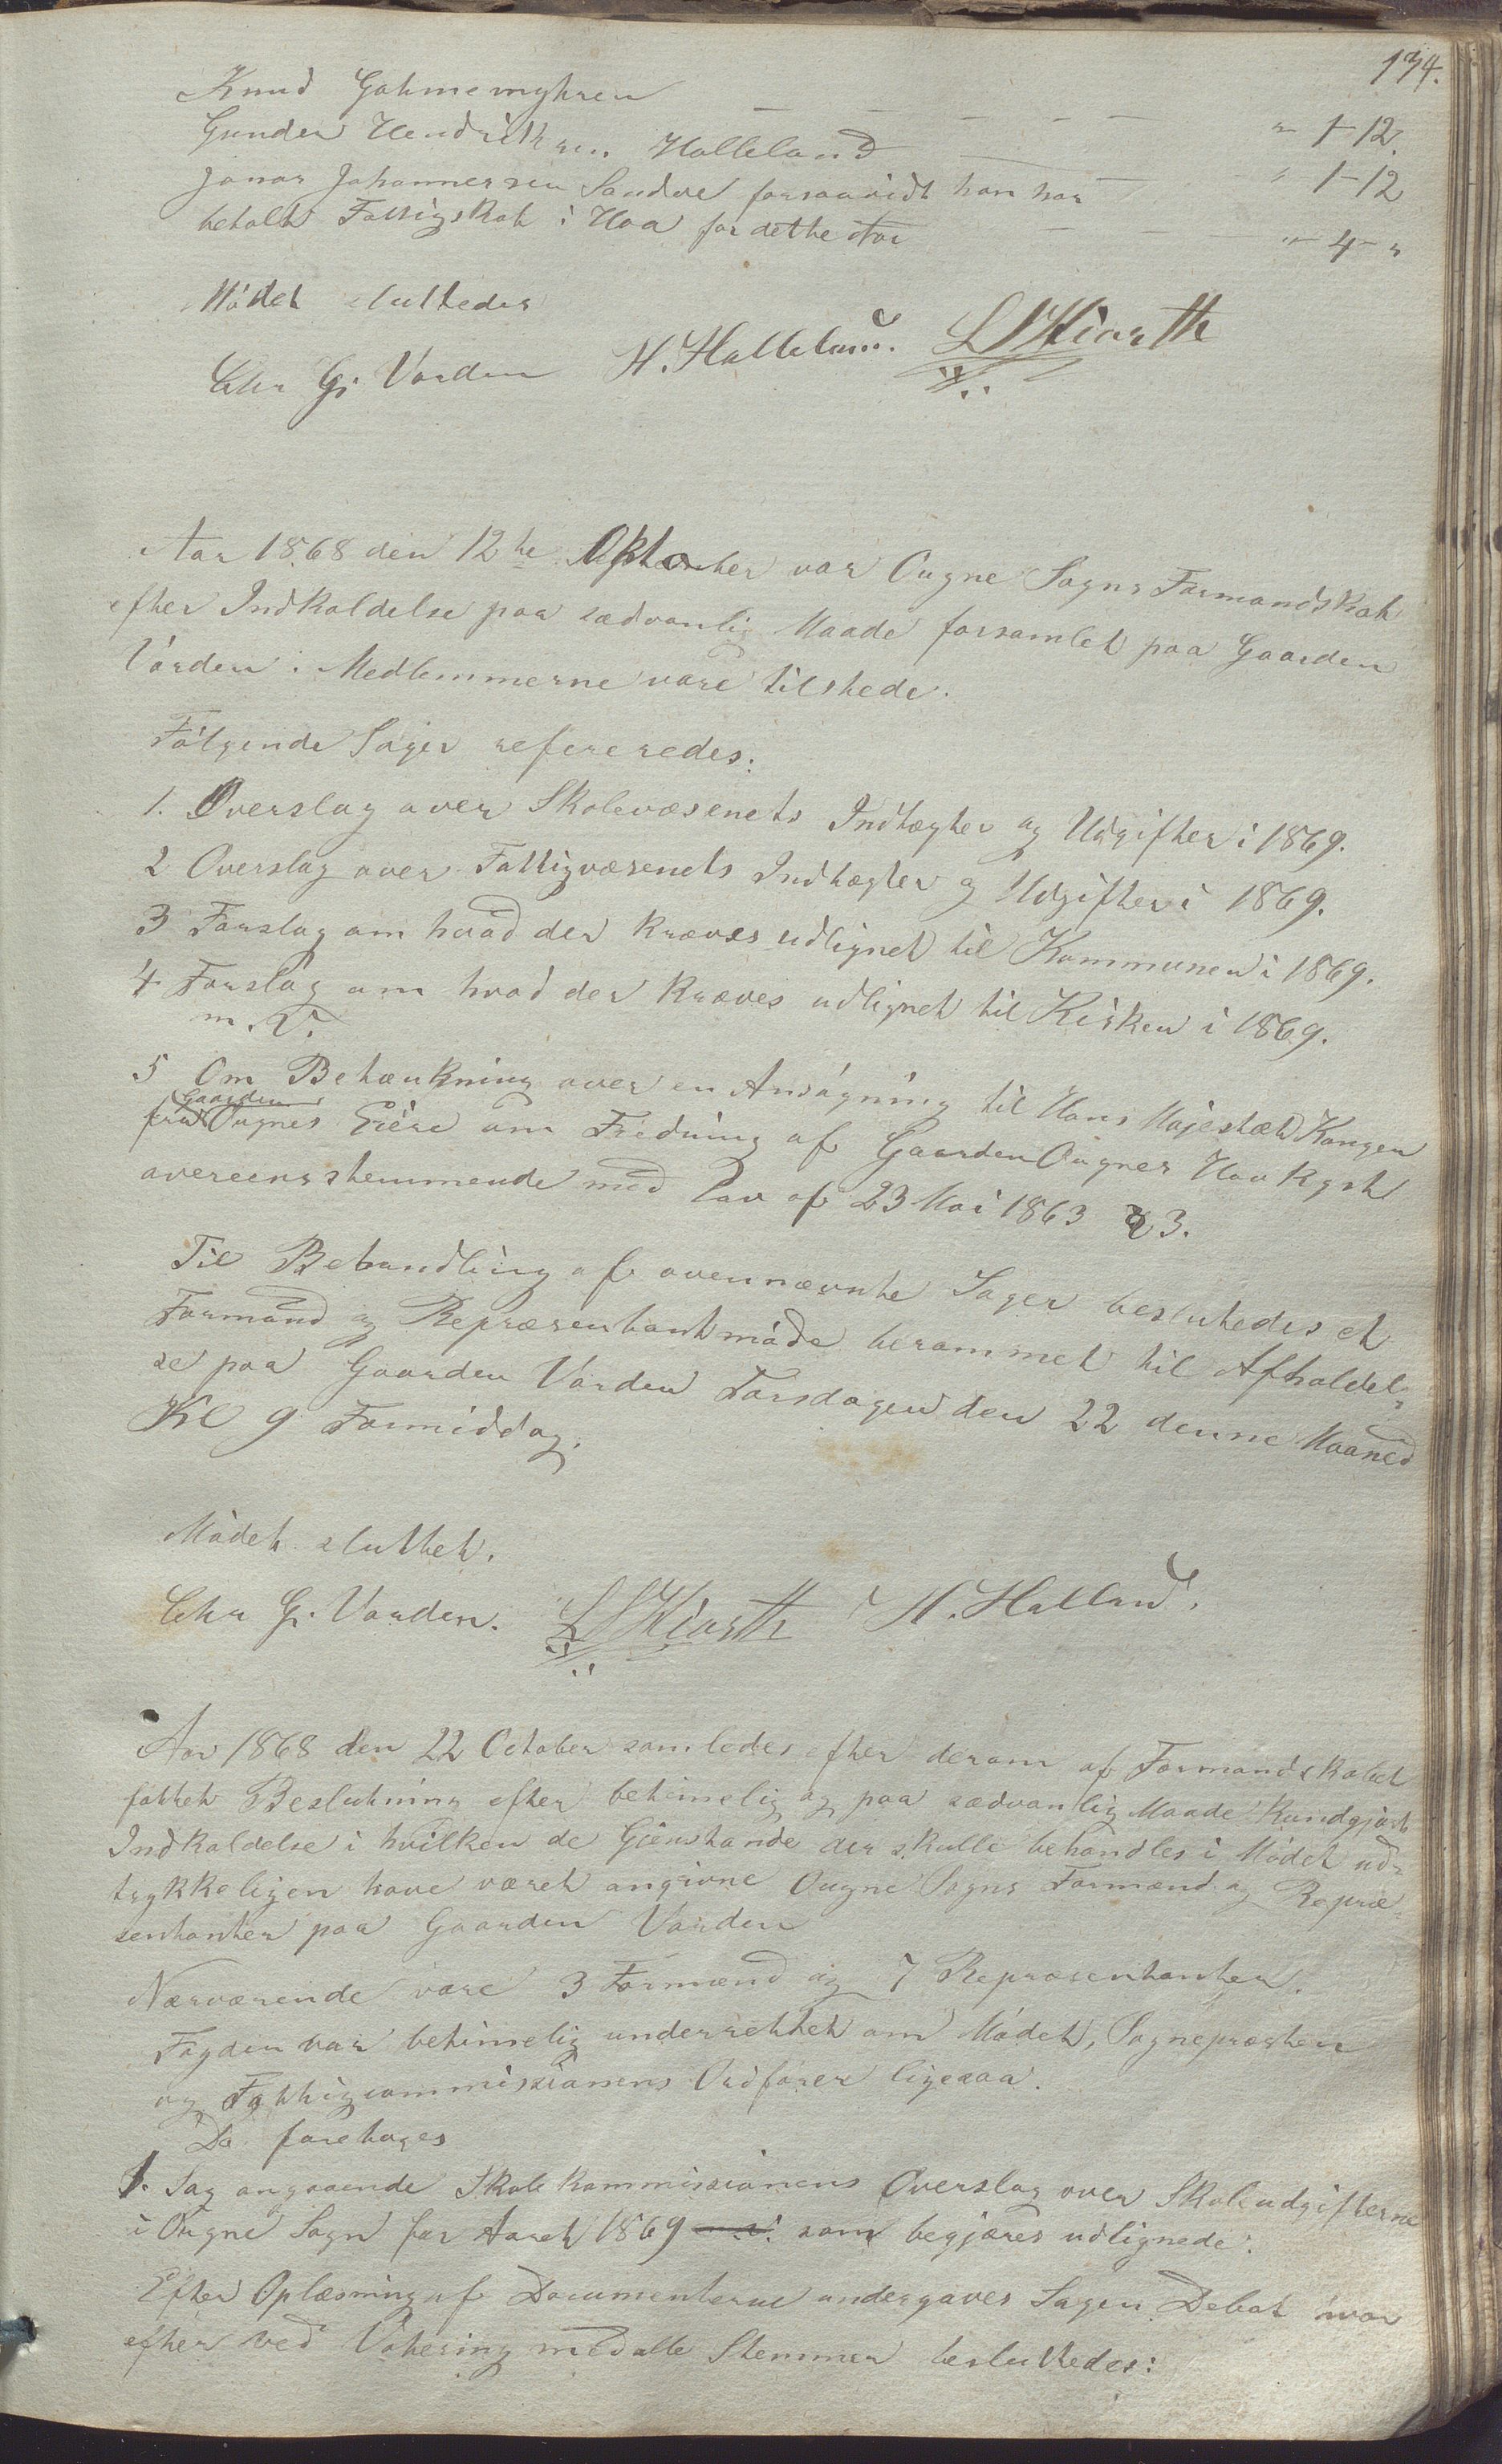 134.
Knud Gahmemyhren — — — — — " 1 - 12.
Gunder Hendriksen Halleland — — — " 1 - 12
Jonas Johannessen Sandve forsaavidt han har
betalt Fattigskat i Haa for dette Aar — — — " 4 - "
Mödet sluttedes
Chr Gj. Varden H. Halleland. LSKiarth
Aar 1868 den 12te Oktober var Ougne Sogns Formandskab
efter Indkaldelse paa sædvanlig Maade forsamlet paa Gaarden
Varden. Medlemmerne vare tilstede.
Fölgende Sager refereredes:
1. Overslag over Skolevæsenets Indtægter og Udgifter i 1869.
2 Overslag over Fattigvæsenets Indtægter og Udgifter i 1869.
3 Forslag om hvad der kræves udlignet til Kommunen i 1869.
4 Forslag om hvad der kræves udlignet til Kirken i 1869.
m. V.
5 Om Betænkning over en Ansögning til Hans Majestæt Kongen
fra Gaarden Ougnes Eiere om Fredning af Gaarden Ougnes Havkyst
overeensstemmende med Lov af 23 Mai 1863 § 3.
Til Behandling af ovennævnte Sager besluttedes et
Formand og Repræsentantmöde berammet til Afholdel-
se paa Gaarden Varden Torsdagen den 22 denne Maaned
Kl 9 Formiddag.
Mödet sluttet.
Chr Gj. Varden. LSKiarth H. Halland.
Aar 1868 den 22 October samledes efter derom af Formandskabet
fattet Beslutning efter betimelig og paa sædvanlig Maade kundgjort
Indkaldelse i hvilken de Gienstande der skulle behandles i Mödet ud-
trykkeligen have været angivne Ougne Sogns Formænd og Repræ-
sentanter paa Gaarden Varden
Nærværende vare 3 Formænd og 7 Repræsentanter.
Fogden var betimelig underrettet om Mödet, Sognepræsten
og Fattigcommissionens Ordförer ligesaa.
Da foretoges
1. Sag angaaende Skolekommissionens Overslag over Skoleudgifterne
i Ougne Sogn for Aaret 1869 som begjæres udlignede.
Efter Oplæsning af Documenterne undergaves Sagen Debat hvor
efter ved Votering med alle Stemmer besluttedes: